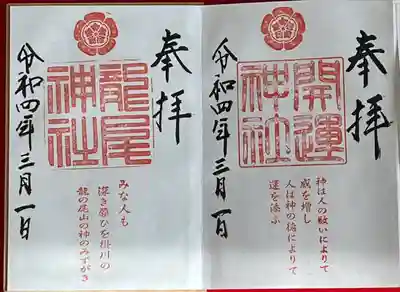 奉拝
開運
神社
神は人の敬いによりて
威を増し
人は神の徳によりて
運を添ふ
令和四年三月一日
奉拝
龍尾
神社
みな人も
深き願ひを掛川の
龍の尾山の神のみずがき
令和四年三月一日